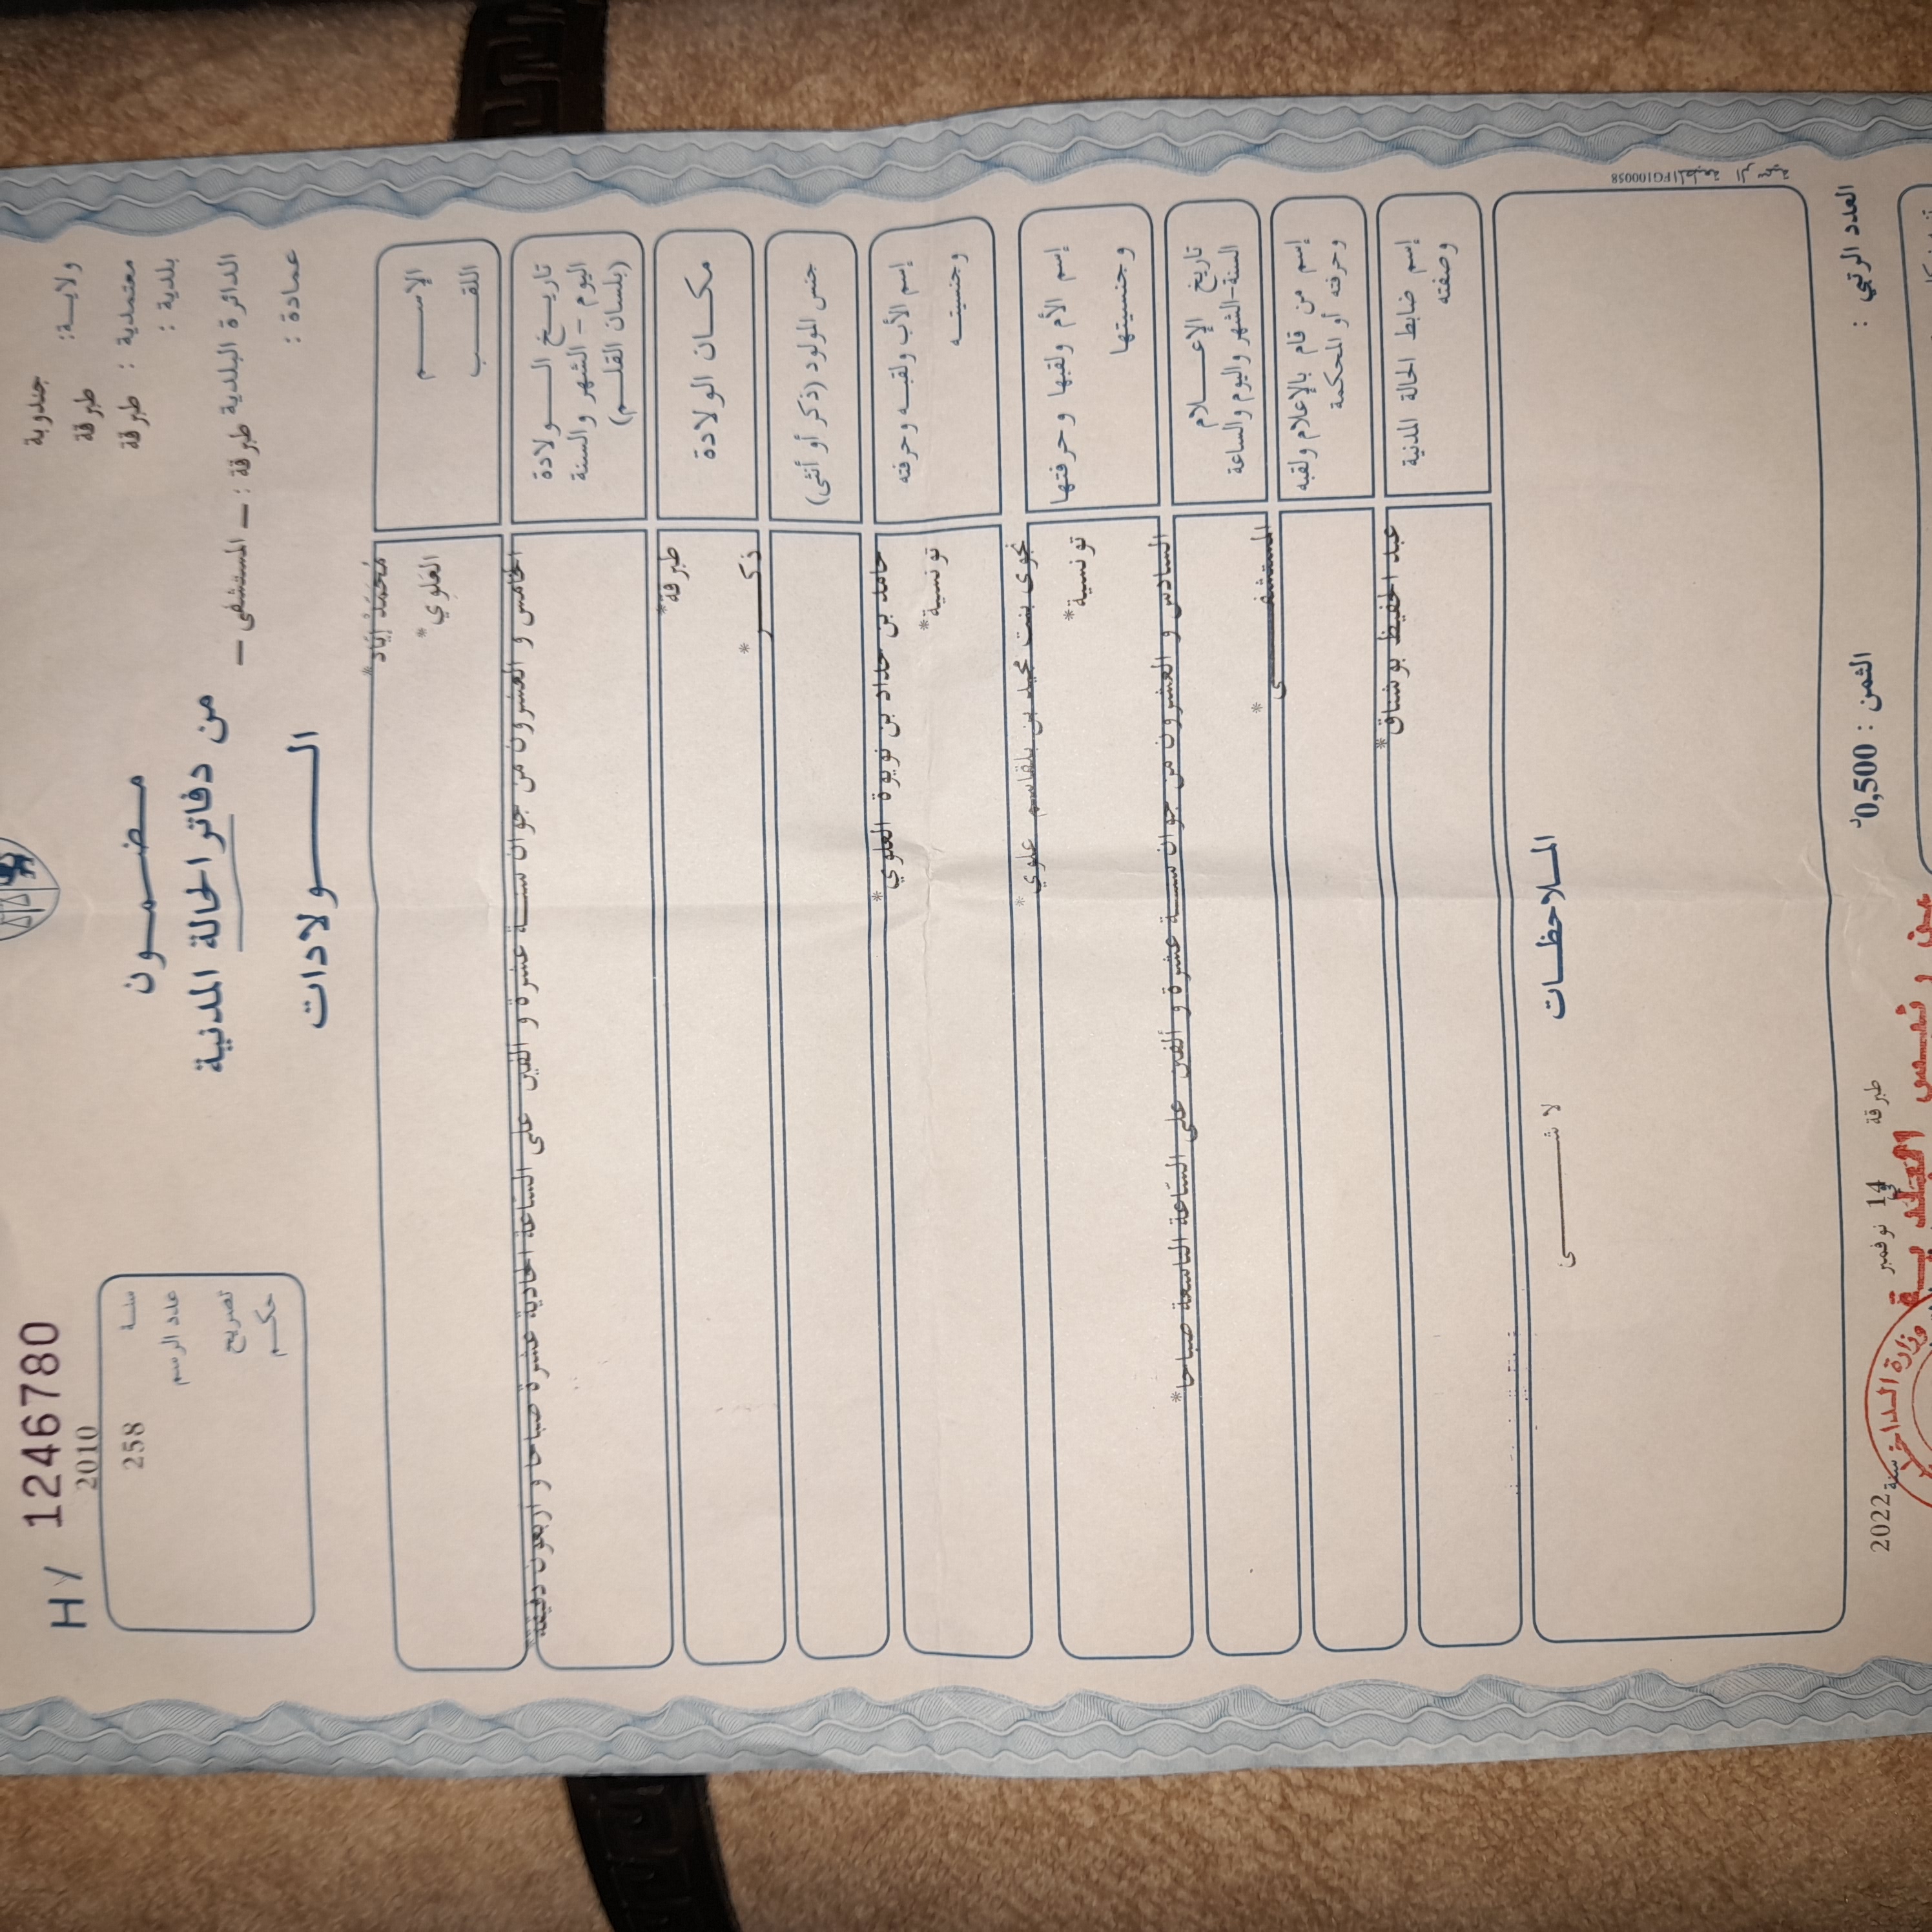 HY 1246780
ولايـــة: جندوبة
معتمدية : طبرقة
بلدية : طبرقة
الدائرة البلدية طبرقة : - المستشفى -
عمادة :
مـضـمـون
من دفاتر الحالة المدنية
الـــولادات
سنــة 2010
عدد الرسم 258
تصريح
حكـم
الإســـم مُحَمَّدْ إيَاد*
اللقـــب العَلَوِي*
تاريـــخ الـــولادة
اليوم - الشهر والسنة
(بلسان القلـــم)
الخامس و العشرون من جوان سنـــة عشرة و الفين على السّاعة الحادية عشرة صباحا و اربعون دقيقة*
مكـــان الولادة طبرقة*
جنس المولود (ذكر أو أنثى) ذكـــر*
إسم الأب ولقبـــه وحرفته حامد بن حداد بن نويرة العلوي*
وجنسيتـــه تونسية*
إسم الأم ولقبها وحرفتها نجوى بنت مجيد بن بلقاسم علوي*
وجنسيتها تونسية*
تاريخ الإعـــلام
السنة-الشهر واليوم والساعة
السادس و العشرون من جوان سنـــة عشرة و ألفين على السّاعة التاسعة صباحا*
إسم من قام بالإعلام ولقبه
وحرفته أو المحكمة
المستشفـــى*
إسم ضابط الحالة المدنية
وصفته
عبد الحفيظ بوشناق*
المـــلاحظـــات
لا شـــــى
المطبعة الرسمية FG100058
العدد الرتبي :
الثمن : 0,500د
طبرقة في 14 نوفمبر سنة 2022
عن رئيس البلدية
وزارة الداخلية